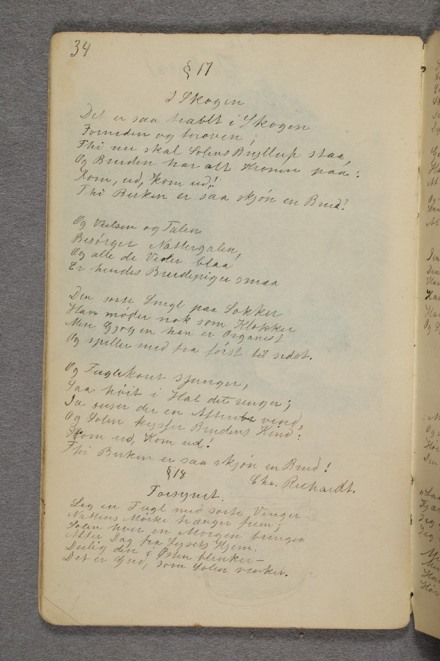 34
§ 17
I Skogen
Det er saa travlt i Skogen
Forneden og foroven,
Thi nu skal Solens Bryllup staa,
Og Bruden har alt Kronen paa:
Kom, ud, kom ud!
Thi Birken er saa skjön en Brud!
Og Velsen og Talen
Besörger Nattergalen,
Og alle de Violer blaa
Er hendes Brudepiger smaa
Den sorte Snegl paa Sokker
Ham möder nok som Klokker
Men Gjögen han er Organist
Og spiller med fra först til sidst.
Og Fuglekoret sjunger,
Saa höit i Hal det runger;
Da suser der en Aftenvind,
Og Solen kysser Brudens Kind:
Kom ud, Kom ud!
Thi Birken er saa skjön en Brud!
Chr. Richardt.
§ 18
Forsynet.
Leg en Fugl med sorte Vinger
Nattens Mörke hænger frem;
Solen hver en Morgen bringer
Atter Dag fra Lysets Hjem.
Deilig den i Östen blinker—
Det er Gud, som Solen vinker.